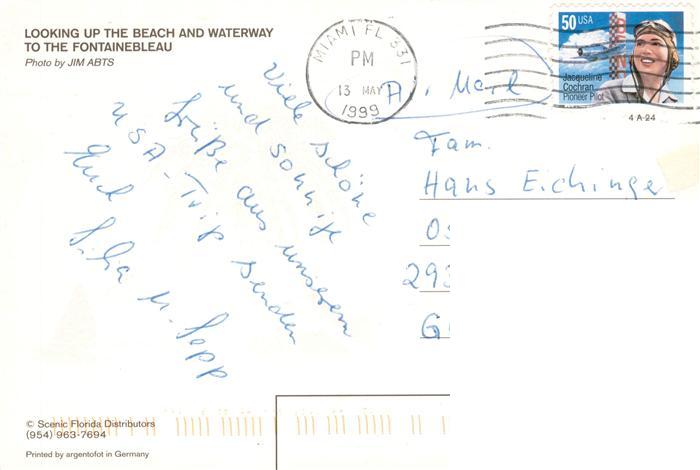 LOOKING UP THE BEACH AND WATERWAY
TO THE FONTAINEBLEAU
Photo by JIM ABTS
MIAMI FL 331
PM
13 MAY
1999
50 USA
Jacqueline
Cochran
Pioneer Pilot
4 A-24
Viele schöne
und sonnige
Grüße aus unserem
USA-Trip senden
Euch
Silvia u. Sepp
Fam.
Hans Eichinger
© Scenic Florida Distributors
(954) 963-7694
Printed by argentofot in Germany